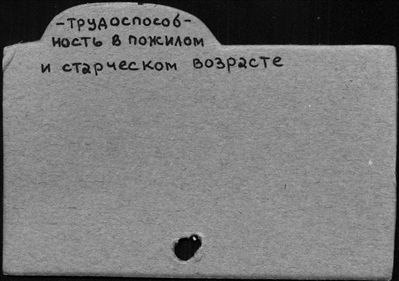 -трудоспособ-
ность в пожилом
и старческом возрасте